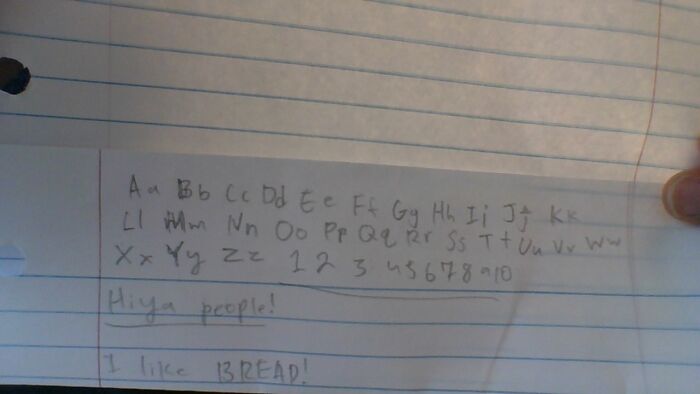 Aa Bb Cc Dd Ee Ff Gg Hh Ii Jj Kk
Ll Mm Nn Oo Pp Qq Rr Ss Tt Uu Vv Ww
Xx Yy Zz 1 2 3 4 5 6 7 8 9 10
Hiya people!
I like BREAD!